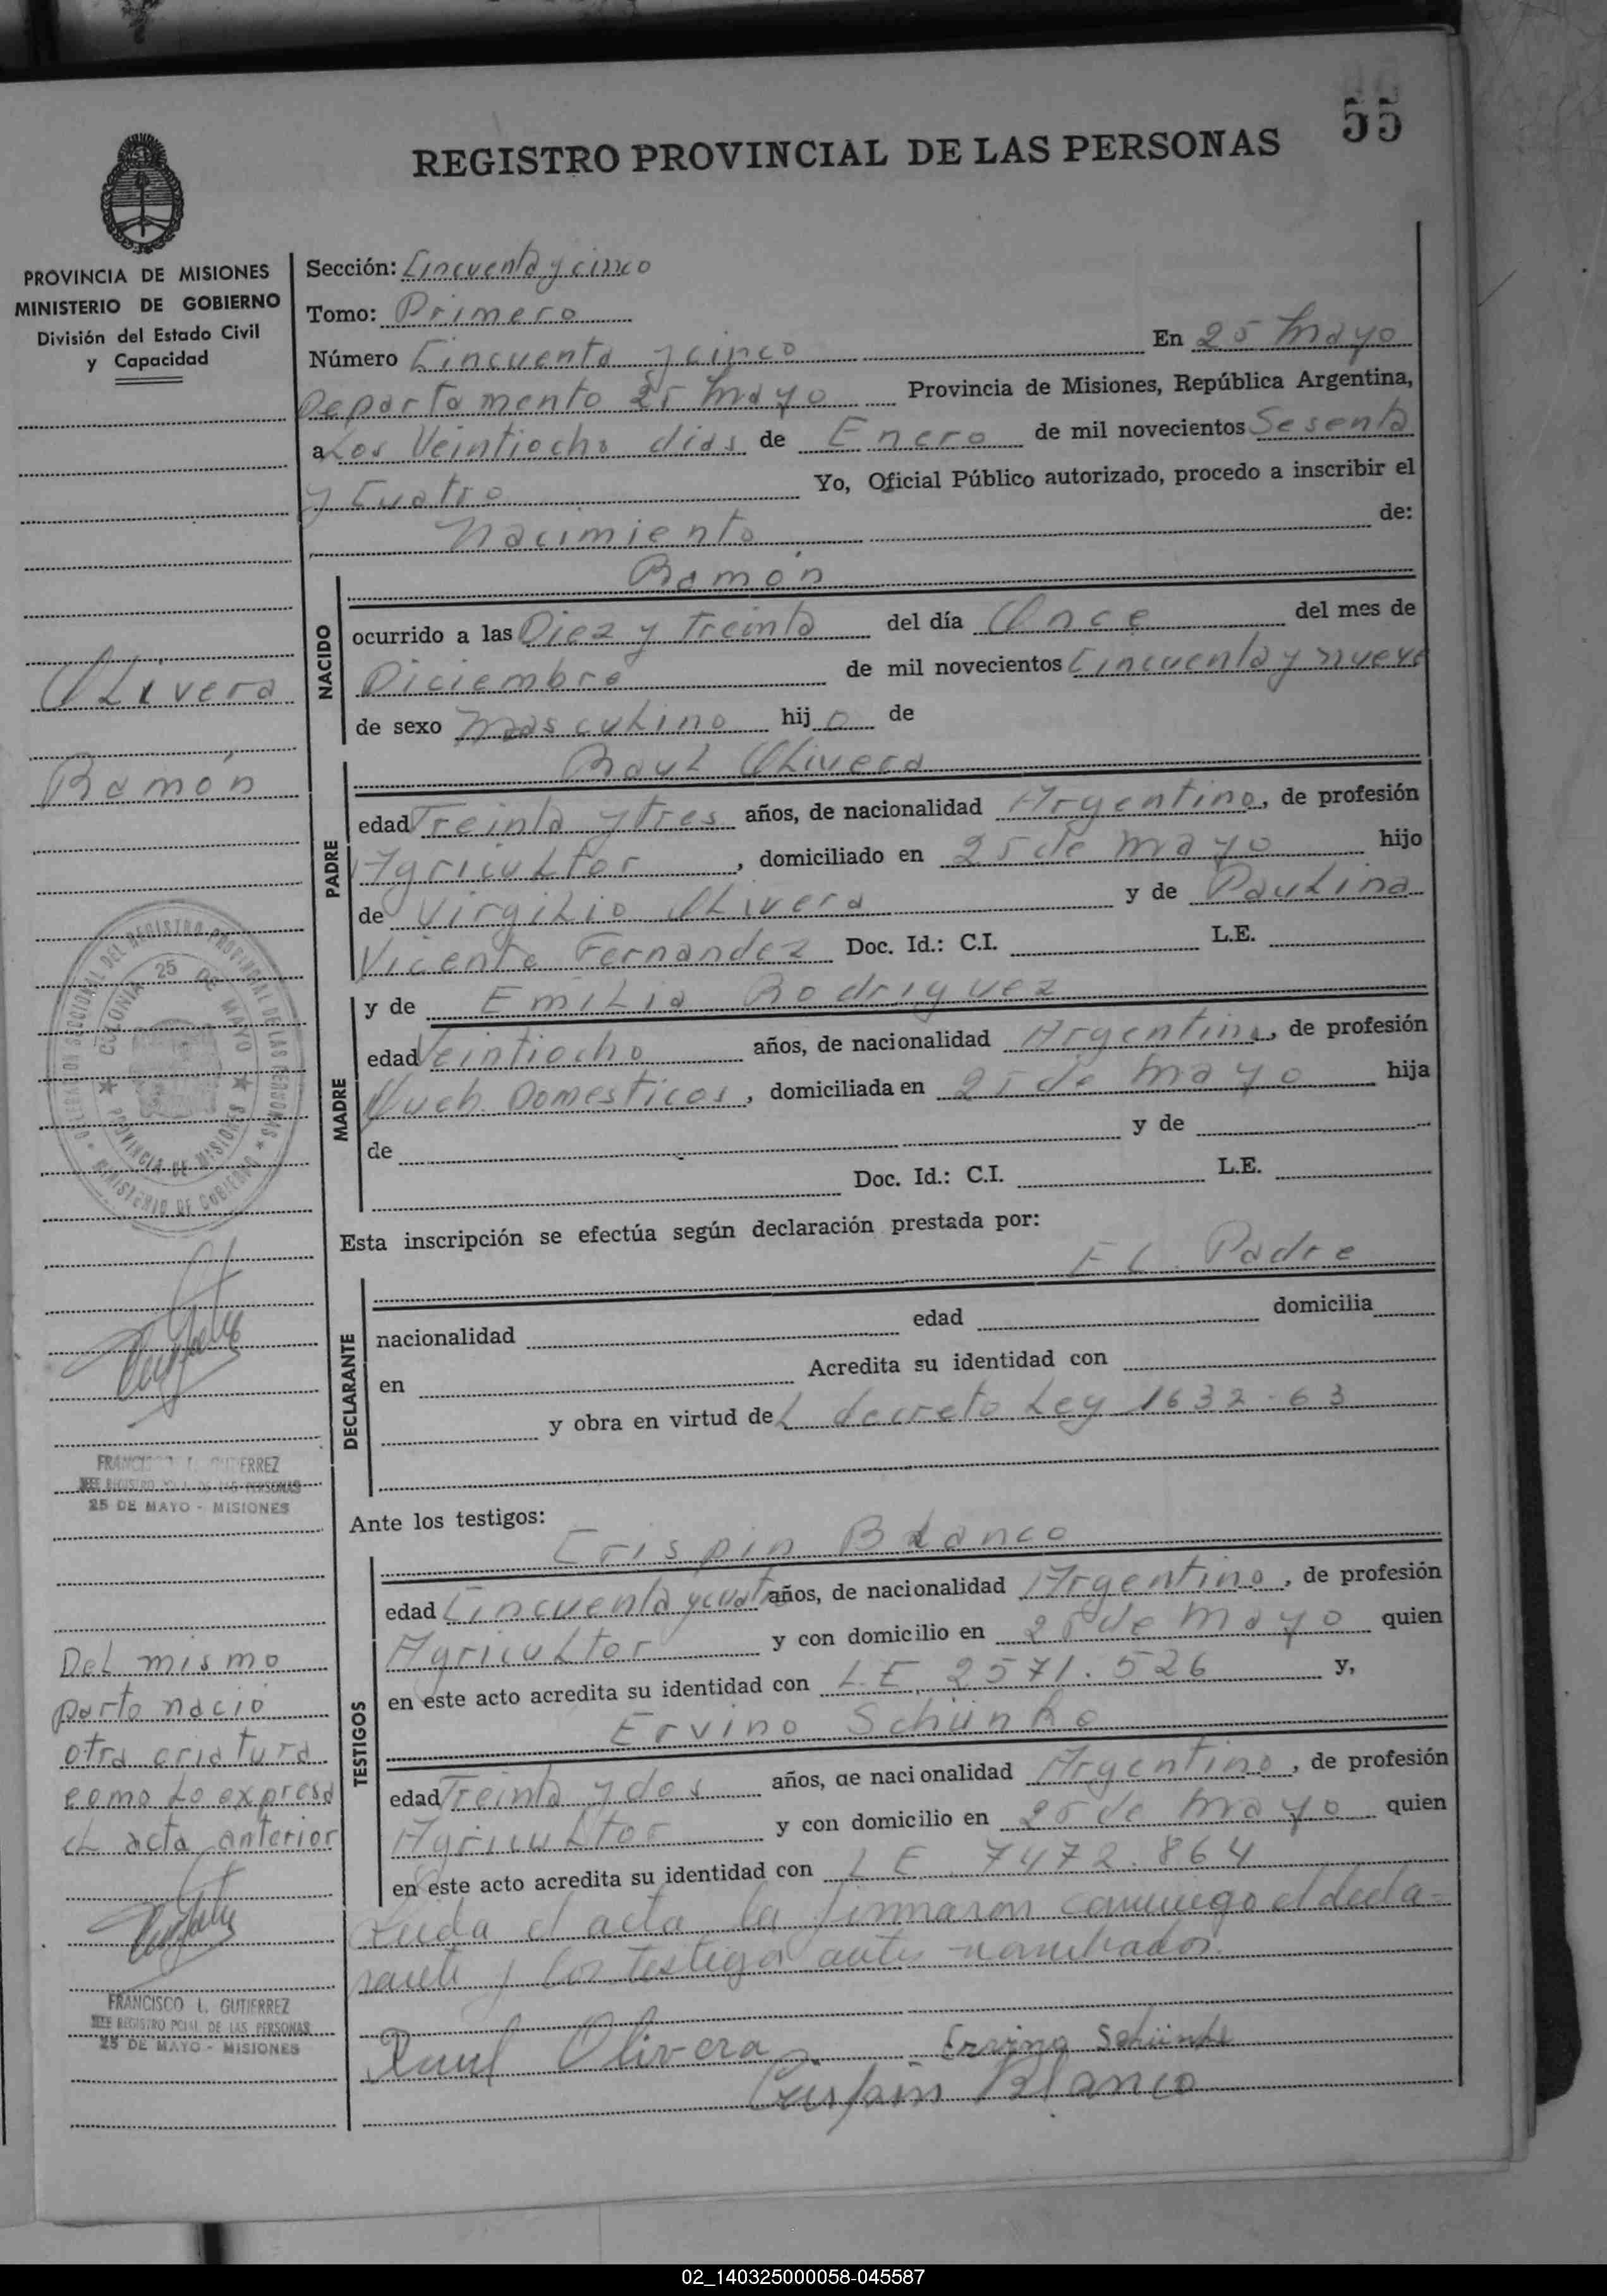 55
REGISTRO PROVINCIAL DE LAS PERSONAS
PROVINCIA DE MISIONES
MINISTERIO DE GOBIERNO
División del Estado Civil
y Capacidad
Sección: Cincuenta y cinco
Tomo: Primero
Número Cincuenta y cinco En 25 Mayo
Departamento 25 Mayo Provincia de Misiones, República Argentina,
a Los Veintiocho dias de Enero de mil novecientos Sesenta
y Cuatro Yo, Oficial Público autorizado, procedo a inscribir el
Nacimiento de:
NACIDO
Ramón
ocurrido a las Diez y Treinta del día Once del mes de
Diciembre de mil novecientos Cincuenta y nueve
de sexo Masculino hijo de
Olivera
Ramón
PADRE
Raul Olivera
edad Treinta y tres años, de nacionalidad Argentino, de profesión
Agricultor, domiciliado en 25 de Mayo hijo
de Virgilio Olivera y de Paulina
Vicenta Fernandez Doc. Id.: C.I. L.E.
MADRE
y de Emilia Rodriguez
edad Veintiocho años, de nacionalidad Argentina, de profesión
Queh. Domesticos, domiciliada en 25 de Mayo hija
de y de
Doc. Id.: C.I. L.E.
DELEGACION SECCIONAL DEL REGISTRO PROVINCIAL DE LAS PERSONAS
MINISTERIO DE GOBIERNO
COLONIA 25 DE MAYO
PROVINCIA DE MISIONES
Esta inscripción se efectúa según declaración prestada por:
DECLARANTE
El Padre
nacionalidad edad domicilia
en Acredita su identidad con
y obra en virtud del decreto Ley 1632-63
FRANCISCO L. GUTIERREZ
JEFE REGISTRO PCIAL DE LAS PERSONAS
25 DE MAYO - MISIONES
Ante los testigos:
TESTIGOS
Crispin Blanco
edad Cincuenta y cuatro años, de nacionalidad Argentino, de profesión
Agricultor y con domicilio en 25 de Mayo quien
en este acto acredita su identidad con L.E. 2571.526 y,
Ervino Schünke
edad Treinta y dos años, de nacionalidad Argentino, de profesión
Agricultor y con domicilio en 25 de Mayo quien
en este acto acredita su identidad con L E. 7472.864
Leida el acta la firmaron conmigo el decla-
rante y los testigos antes nombrados.
Del mismo
parto nació
otra criatura
como lo expresa
el acta anterior
FRANCISCO L. GUTIERREZ
JEFE REGISTRO PCIAL DE LAS PERSONAS
25 DE MAYO - MISIONES
Raul Olivera Ervino Schünke
Crispin Blanco
02_140325000058-045587